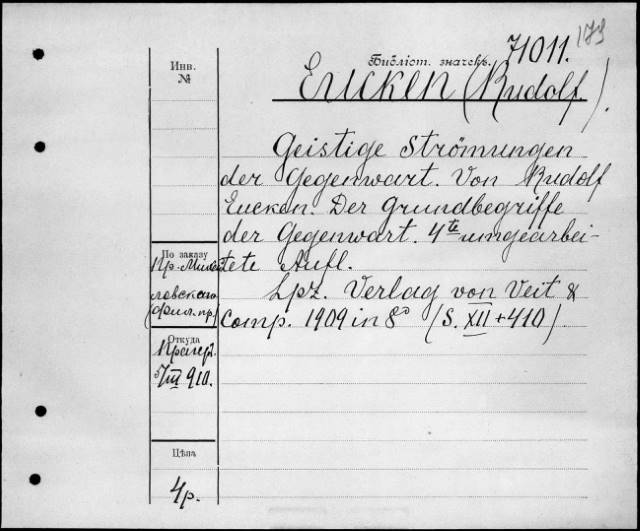 173
71011.
Инв.
№
Библіот. значекъ.
Eucken (Rudolf).
Geistige Strömungen
der Gegenwart. Von Rudolf
Eucken. Der Grundbegriffe
der Gegenwart. 4te umgearbei-
tete Aufl.
Lpz. Verlag von Veit &
Comp. 1909 in 8° (S. XII + 410).
По заказу
Пр.
ловскаго
Откуда
5/III 910.
Цѣна
4р.